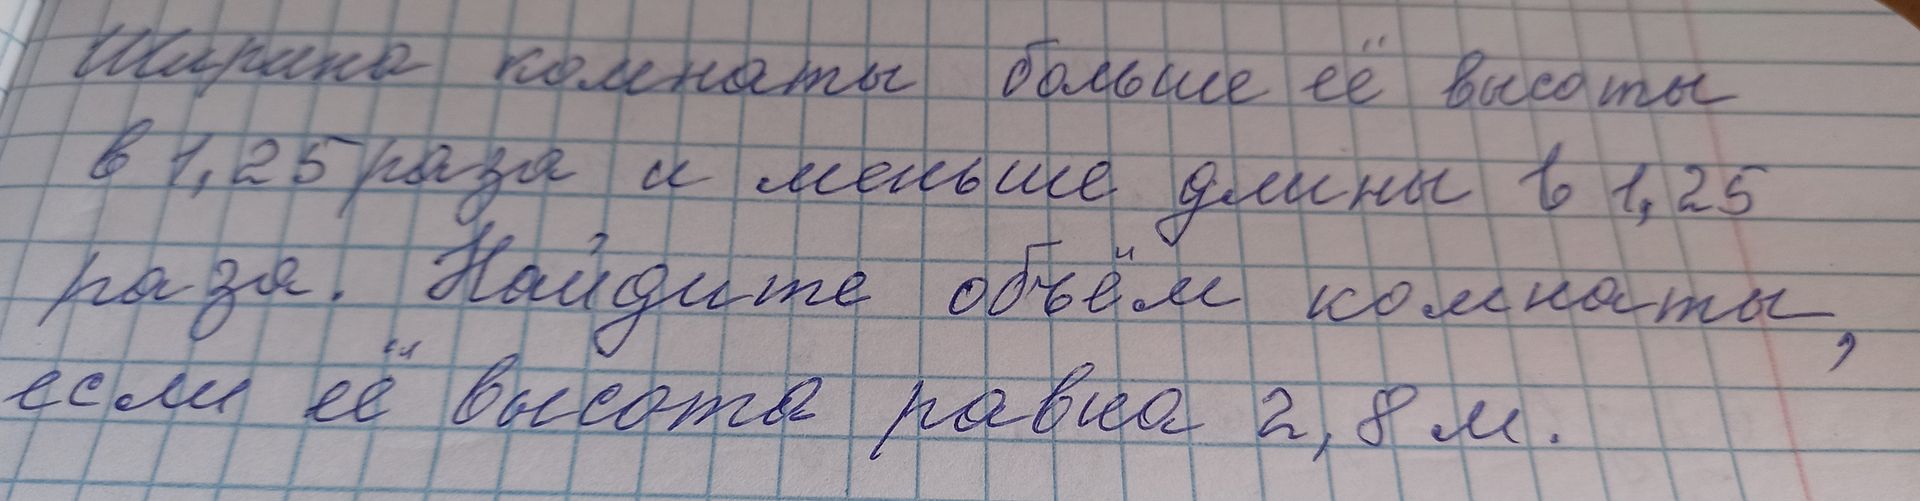 Ширина комнаты больше её высоты
в 1,25 раза и меньше длины в 1,25
раза. Найдите объём комнаты,
если её высота равна 2,8 м.